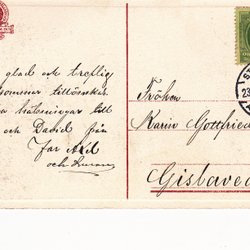 glad och treflig
sommar tillönskas
hälsningar till
och David från
far Axel
och
Fröken
Karin Gottfried
Gislaved
23